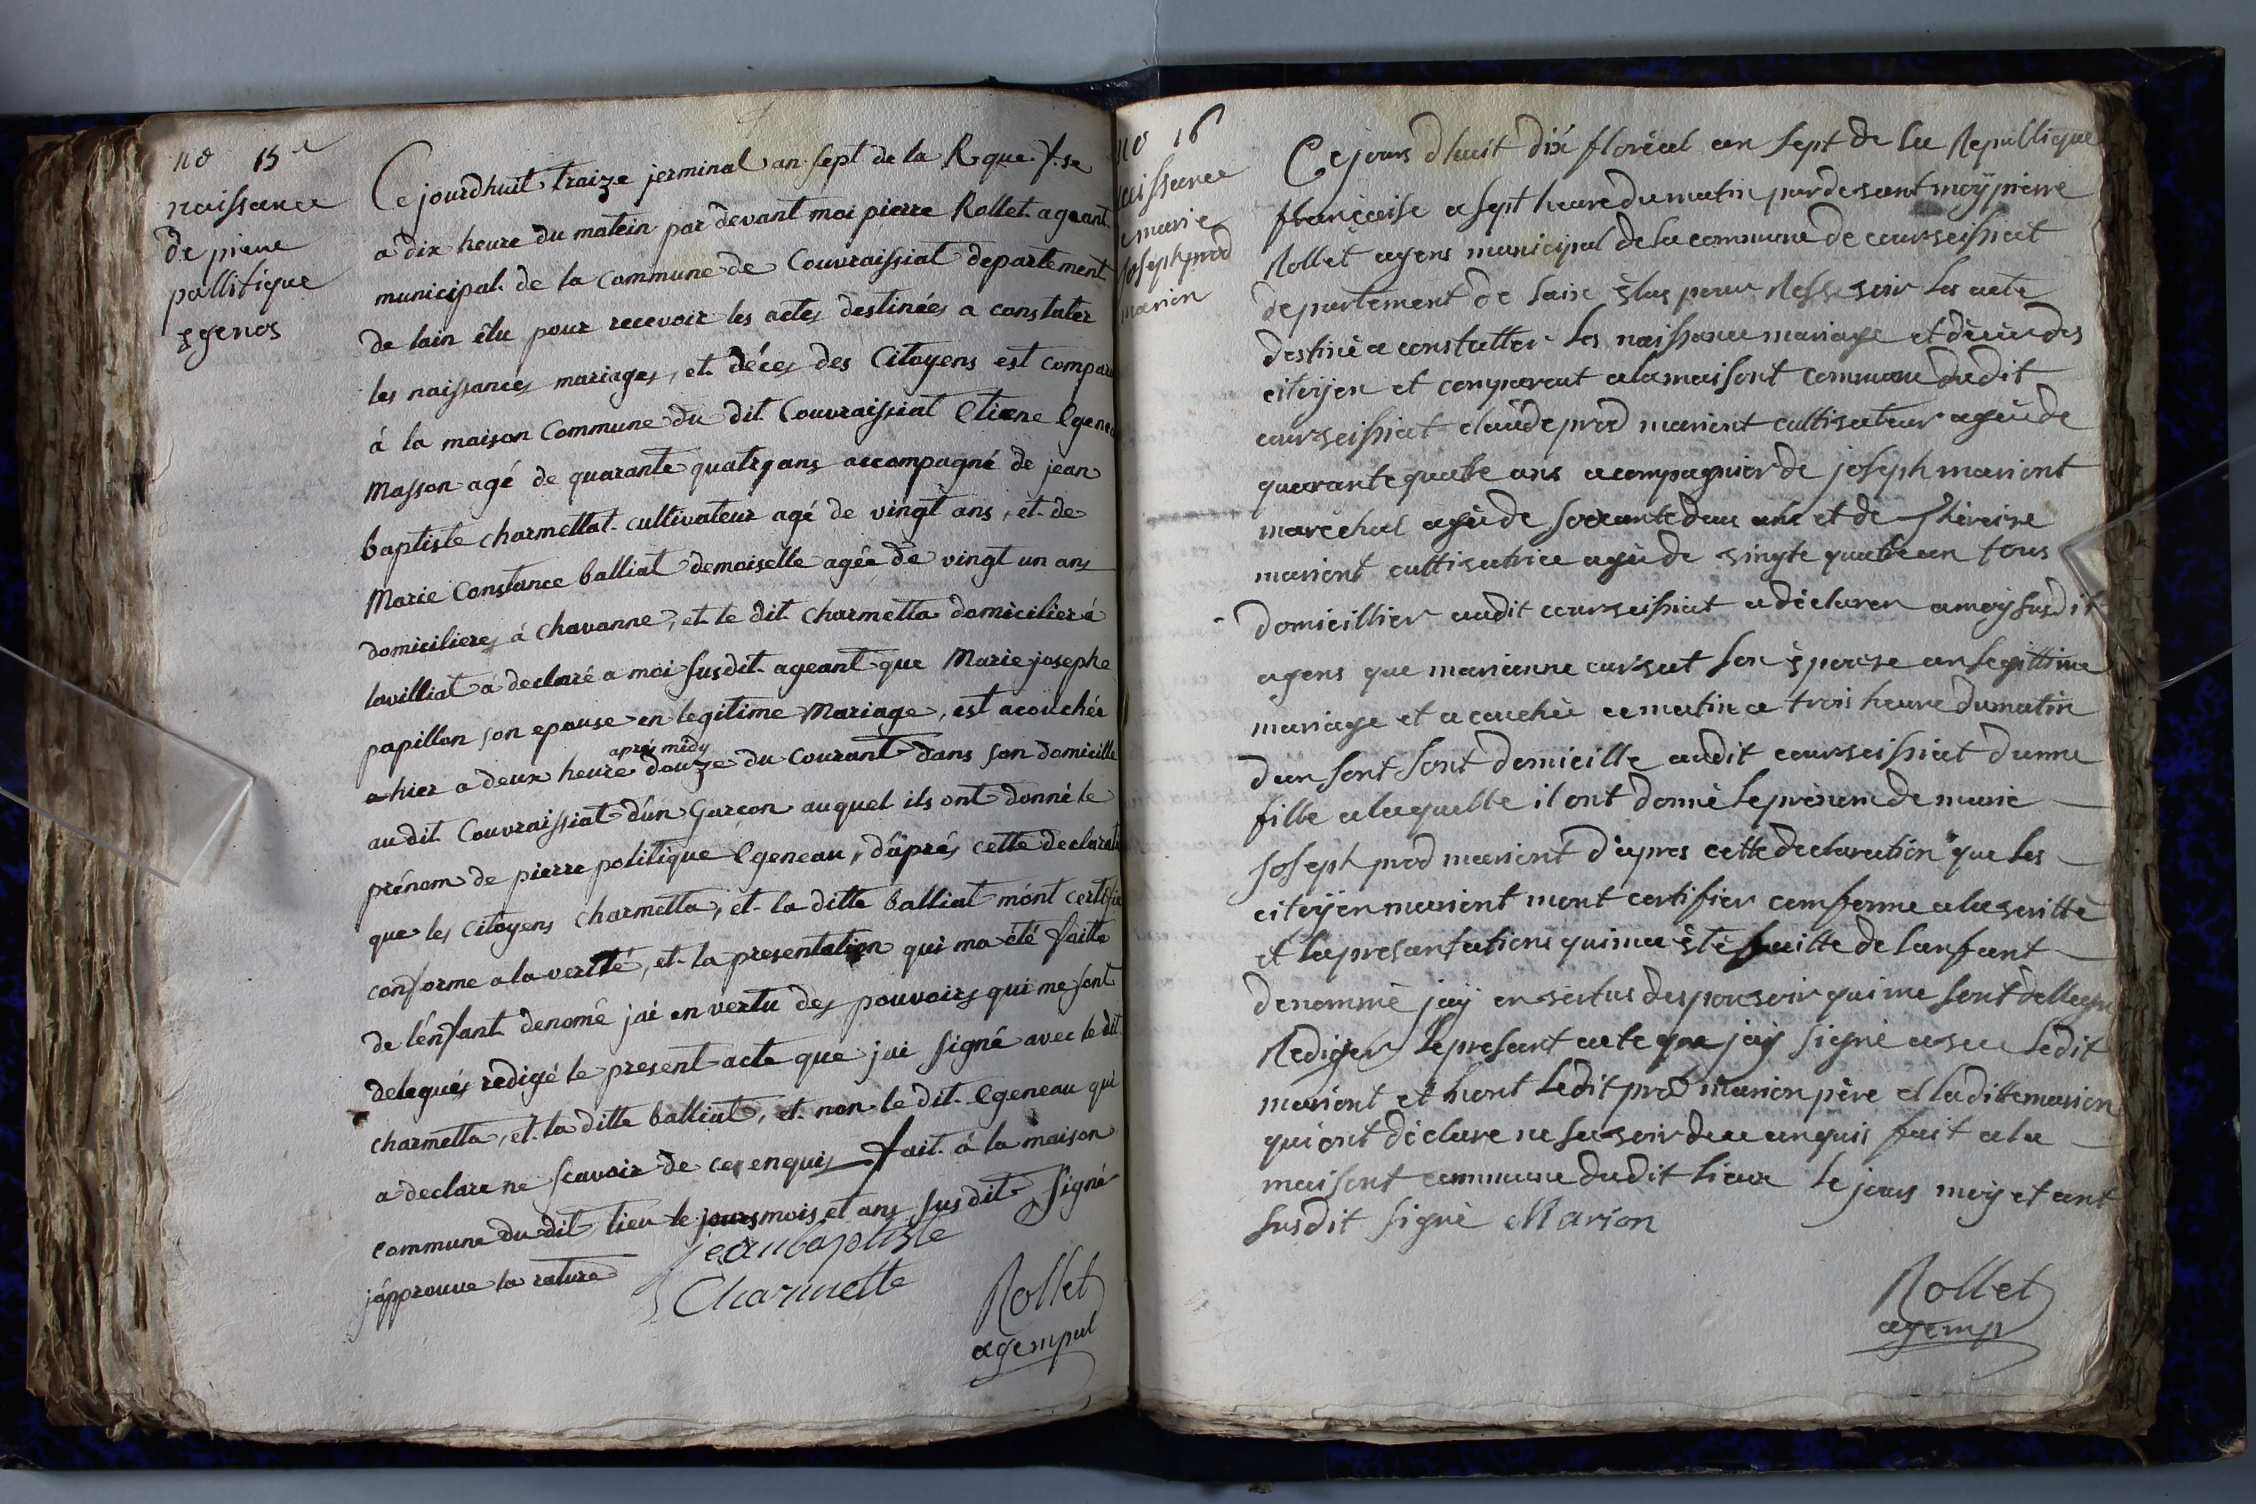 no 15
naissance
de pierre
pollitique
egenos
Ce jourdhuit traize jerminal an sept de la Rque f.se
a dix heure du matein par devant moi pierre Rollet ageant
municipal de la Commune de Couvraissiat departement
de lain élu pour recevoir les actes destinées a constater
les naissances mariages, et décés des Citoyens est comparu
à la maison Commune du dit Couvraissiat Etiene Egeneau
Masson agé de quarante quatre ans accompagné de jean
baptiste charmettat cultivateur agé de vingt ans, et de
Marie Constance balliat demoiselle agée de vingt un ans
domicilieres á chavanne, et le dit charmetta domicilier á
lavilliat a declaré a moi susdit ageant que Marie josephe
papillon son epouse en legitime Mariage, est acouchée
hier a deux heure après midy douze du Courant dans son domicille
au dit Couvraissiat d'un Garcon auquel ils ont donné le
prénom de pierre politique Egeneau, d'aprés cette declarati
que les Citoyens charmetta, et la ditte balliat m'ont certifié
conforme a la verité, et la presentation qui ma été faitte
de l'énfant denomé jai en vertu des pouvoirs qui me sont
delegués redigé le present acte que jai signé avec le dit
charmetta, et la ditte balliat, et non le dit Egeneau qui
a declare ne scavoir de ce enquis fait á la maison
commune du dit lieu le jours mois et ans susdit signé
j'approuve la rature
jeanbaptiste
Charmette
Rollet
agempal
no 16
naissance
marie
joseph prod
marion
Ce jours dhuit dix floréal an sept de la Republique
française a sept heure du matin pardevant moy pierre
Rollet agens municipal de la commune de courveissiat
departement de lain élus pour Ressevoir les acte
destiné a constatter les naissance mariage et décès des
citoyen et comparut a la maisont commune dudit
courveissiat claude prod mariont cultivateur agéé de
quarante quatre ans acompagnier de joseph mariont
maréchal agéé de soixante deux ans et de Théreise
mariont cultivatrice agéé de vingte quatre an tous
domicillier audit courveissiat a déclarer a moy susdit
agens que marianne cursat son épouse an legittime
mariage et acouchéé ce matin a trois heure du matin
dan sont sont domicille audit courveissiat dunne
fille a laquelle il ont donné le prénom de marie
joseph prod mariont d'apres cette declaration que les
citoyen mariont mont certifier comforme a la veritté
et la presantations qui ma été faitte de lanfant
denommé jay en vertus des pouvoir qui me sont dellegu
Rediger le presant acte que jay signé avec ledit
mariont et nont ledit prod marion père et la ditte marion
qui ont déclare ne savoir de ce anquis fait a la
maisont commune dudit lieux le jours moy et ant
susdit signé Marion
Rollet
agemp